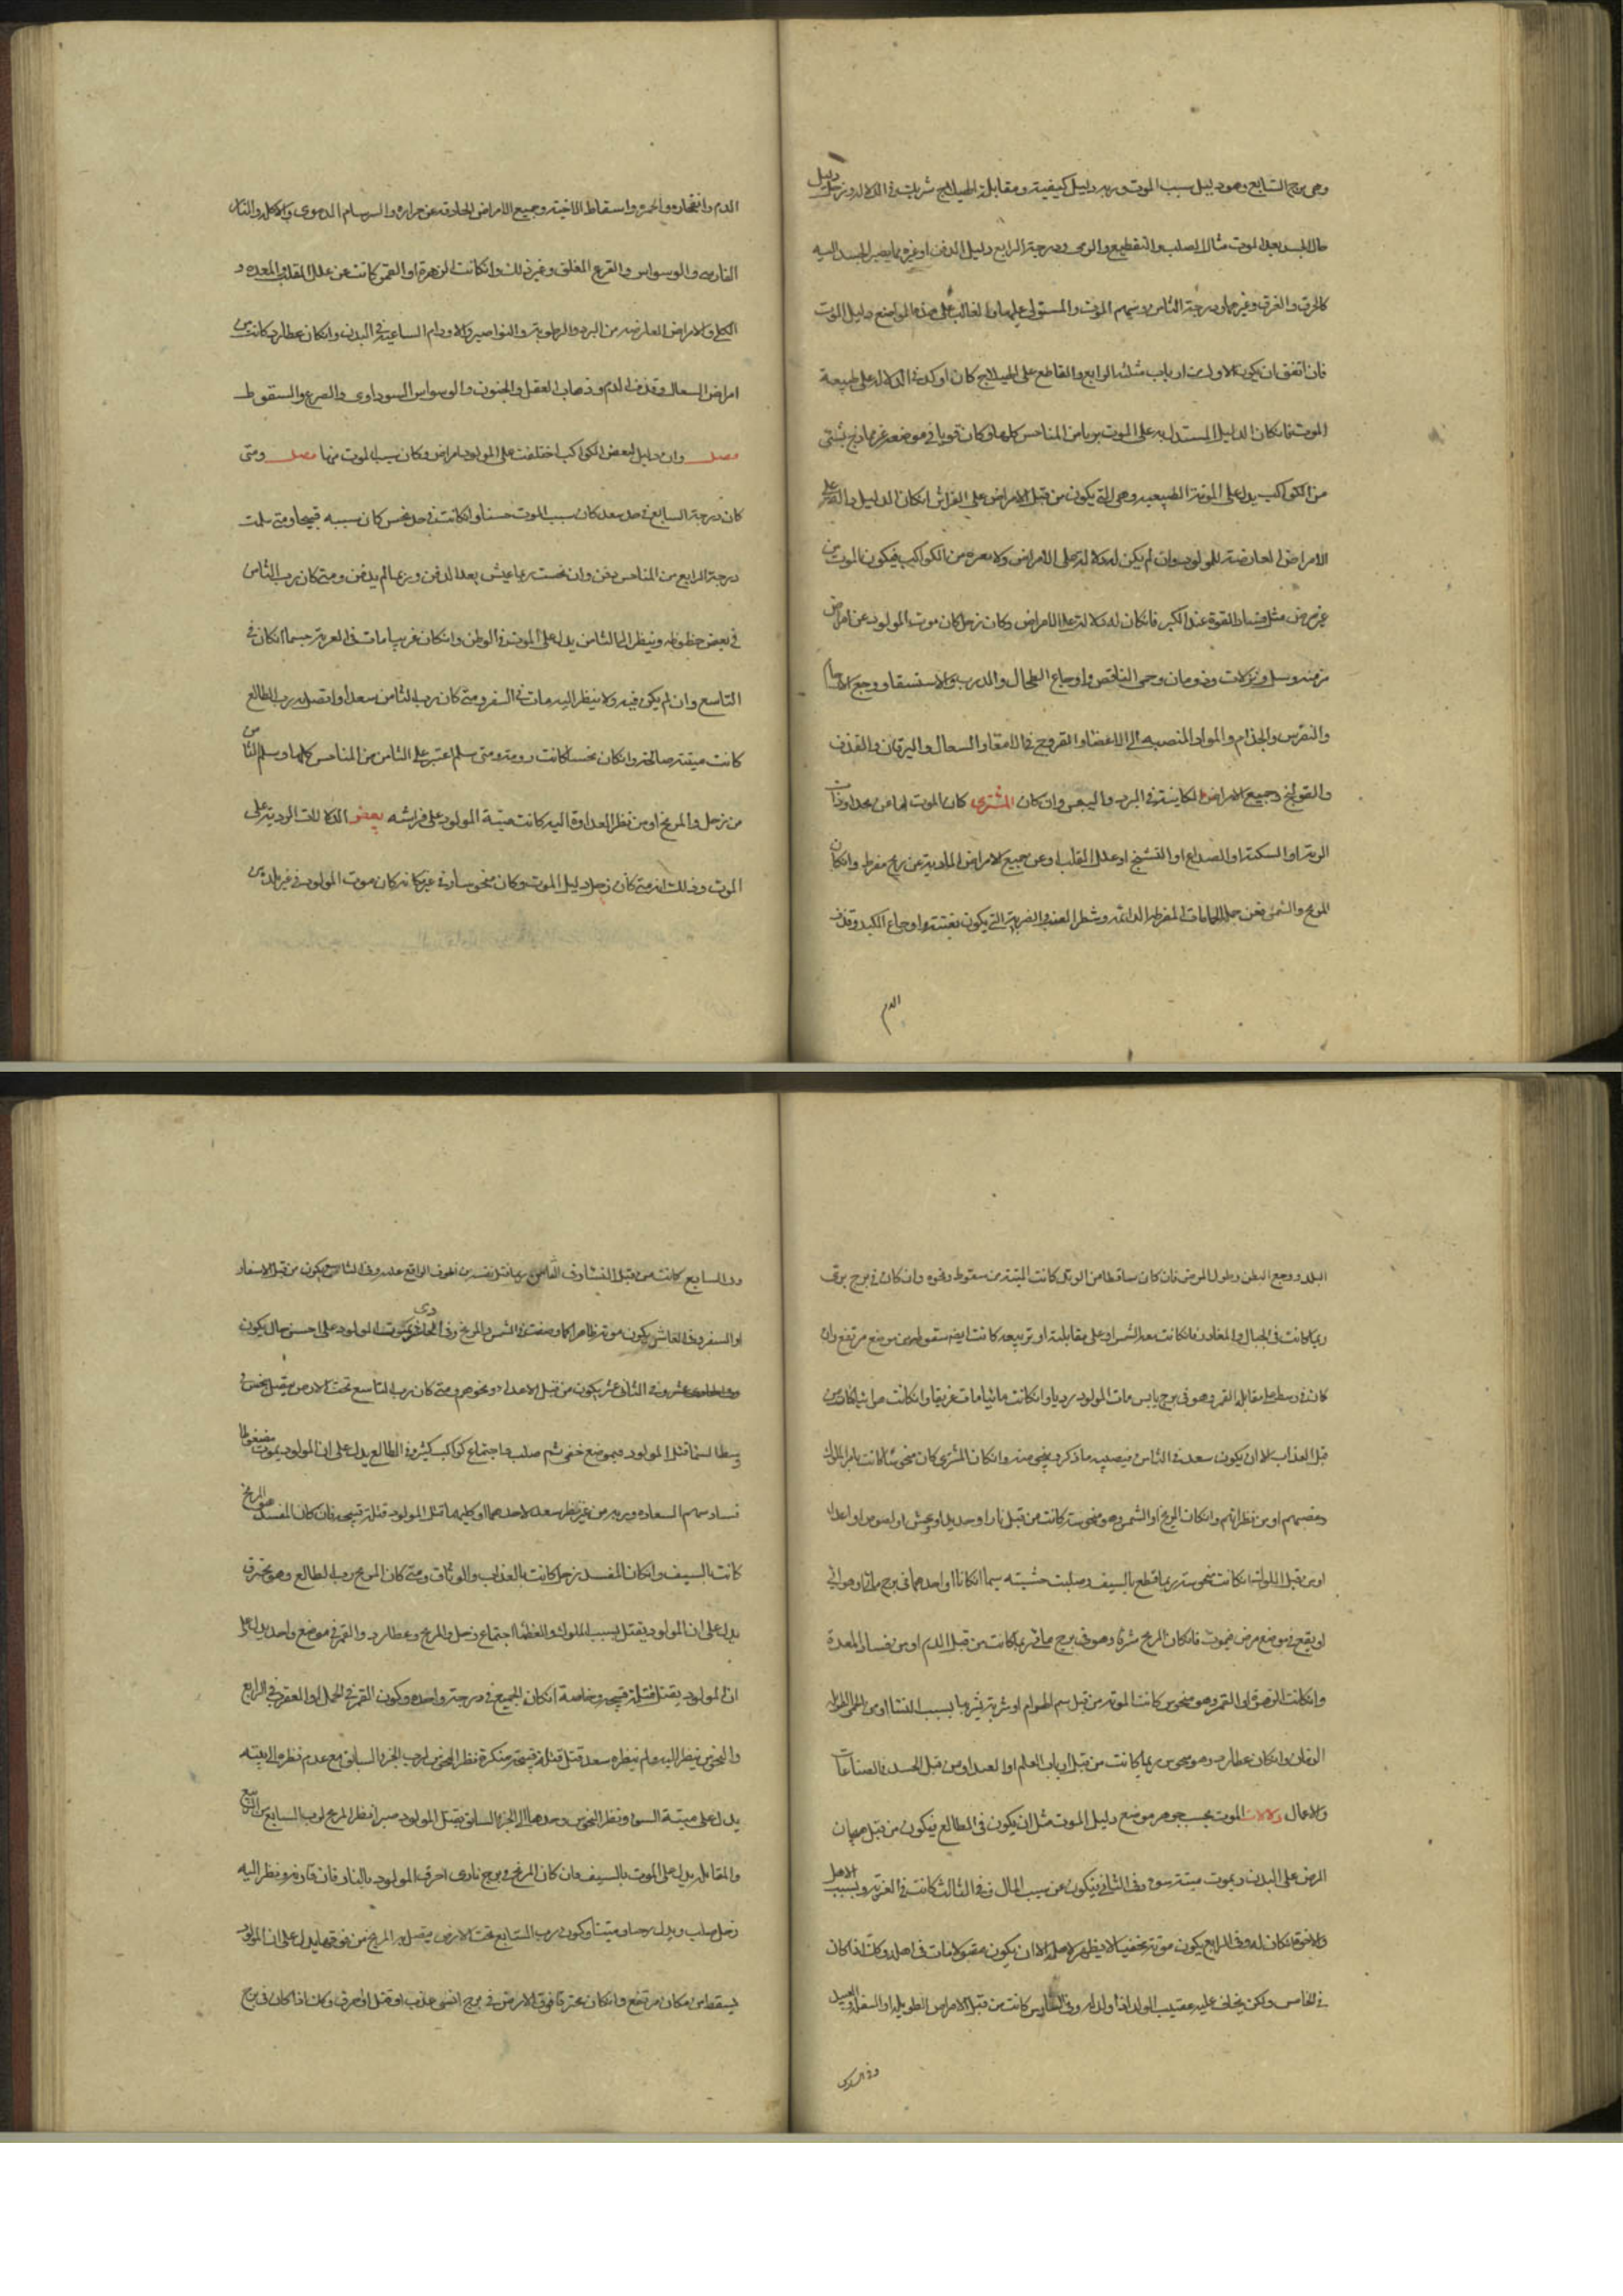 وهى برج السابع وهو دليل سبب الموت وربه دليل كيفيته ومقابلة الهيلاج شريك فى الدلالة وزحل دليل
حال الجسد بعد الموت مثال الصلب والتقطيع والرمى ودرجة الرابع دليل الدفن او غيره مما يصير الجسد اليه
كالحرق والغرق وغيرهما ودرجة الثامن وسهم الموت والمستولى عليهما والغالب على هذه المواضع دليل الموت
فان اتفق ان يكون الاول من ارباب مثلثه الرابع والقاطع على الهيلاج كان اوكد فى الدلالة على طبيعة
الموت فان كان الدليل المستدل به على الموت بريا من المناحس كلها وكان قويا فى موضعه غير ممازج بشىء
من الكواكب يدل على الموتة الطبيعيه وهى التى يكون من قبل الامراض على الفراش ان كان الدليل دالة على
الامراض العارضة للمولود وان لم يكن له دلالة على الامراض ولا من الكواكب فيكون الموت من
غير مرض مثل سقاط القوة عند الكبر فان كان له دلالة على الامراض وكان زحل كان موت المولود عن امراض
مزمنه وسل ونزلات وذوبان وحمى النافض واوجاع الطحال والدرب والاستسقا ووجع الارحام
والنقرس والجذام والمواد المنصبه الى الاعضا والقروح فى الامعا والسعال واليرقان والقذف
والقولنج وجميع الامراض الكاينة فى البرد واليبس وان كان المشترى كان الموت اما عن
الرية او السكتة او الصداع او التشنج او علل القلب او عن جميع الامراض المادية عن ريح مفرط وان كان
المريخ والشمس فعن جل الحمايات المفرطه الدائمه وشطر الغب والضربة التى يكون بغتة واوجاع الكبد وقذف
الدم
الدم وانفجاره والحمره واسقاط الاجنة وجميع الامراض الحادثه عن حراره والسرسام الدموى والاكله والنار
الفارسه والوسواس والقرع المغلق وغير ذلك وان كانت الزهرة او القمر كانت عن علل القلب والمعده و
الكلى والامراض العارضه من البرد والرطوبة والنواصير والاورام الساعية فى البدن وان كان عطارد كانت من
امراض السعال وقذف الدم وذهاب العقل والجنون والوسواس السوداوى والصرع والسقوط
فصل وان دليل لبعض الكواكب اختلفت على المولود امراض وكان سبب الموت منها فصل ومتى
كان درجة السابع فى حد سعد كان سبب الموت حسنا وان كانت فى حد نحس كان سببه قبيحا ومتى سلمت
درجة الرابع من المناحس دفن وان نحست ربما عيش بعد الدفن وربما لم يدفن ومتى كان رب الثامن
فى بعض حظوظه وينظر الى الثامن يدل على الموت فى الوطن وان كان غريبا مات فى الغربة سيما ان كان فى
التاسع وان لم يكن فيه ولا ينظر اليه مات فى السفر ومتى كان رب الثامن سعدا واتصل به رب الطالع
كانت ميتته صالحة وان كان نحسا كانت رديه ومتى سلم عشر على الثامن من المناحس كلها وسلم الثامن
من زحل والمريخ او من نظر العداوة اليه كانت ميتة المولود على فراشه بعض الدلالات الردية على
الموت وذلك انه متى كان زحل دليل الموت وكان منحوسا وفى غير مكانه كان موت المولود فى غير بلده من
البلد ووجع البطن وطول المرض فان كان ساقطا من الوتد كانت الميتة من سقوط ونحوه وان كان فى برج برى
ربما كانت فى الجبال والمغاور فان كانت معه الشمس او على مقابلته او تربيعه كانت ايضا سقوطه من موضع مرتفع وان
كان فى وسط على مقابلة القمر وهو فى برج يابس مات المولود رديا وان كانت مائيا مات غريقا وان كانت هوائيا كان من
قبل العذاب الا ان يكون سعد فى الثامن فيصيبه ما ذكر وينجى منه وان كان المشترى كان منحوسا كانت بامر الملوك
وغضبهم او من نظراتهم وان كان المريخ او الشمس وهو منحوسة كانت من قبل نار او حديد او عيش او لصوص او اعداء
او من قبل الملوك ان كانت منحوسة ربما قطع بالسيف وصلبت خشبته سيما ان كانا او احدهما فى برج مائى او هوائى
او يقع فى موضع مرض فيموت فان كان المريخ شرقا وهو فى برج مائى ربما كانت من قبل الدم او من فساد المعدة
وان كانت الزهرة او القمر وهو منحوس كانت الموتة من قبل سم الهوام او شربة يشربها بسبب النسا او من الحمى الطويله
او ان كان عطارد وهو منحوس ربما كانت من قبل ارباب العلم او العبد او من قبل الحسد فى الصناعات
والاعمال دلالات الموت بحسب جوهر موضع دليل الموت مثل ان يكون فى الطالع فيكون من قبل هيجان
المرض على البدن ويموت ميتة سو وفى الثانى فيكون عن سبب المال وفى الثالث كانت فى الغربة وبسبب الاهل
والاخوة ان كان له وفى الرابع يكون موته مخفيا لا يظهر لاهله الا ان يكون مقبولا مات فى اهله وكذا اذا كان
فى الخامس ولكن يخاف عليه عقيب الولد اذا ولد له وفى السادس كانت من قبل الامراض الطويله او السفر او العبيد
وفى السادس
وفى السابع كانت من قبل النسا وفى الثامن ربما قتل نفسه من الخوف الواقع عليه وفى التاسع يكون من قبل الاسفار
او السفر وفى العاشر يكون موته ظاهرا كما وصفت فى الشمس والمريخ وفى الحادى عشر يموت المولود على احسن حال يكون
وفى الثانى عشر يكون من قبل الاعداء ونحوهم ومتى كان رب التاسع تحت الارض متصل بنحس فى
وسط السما قتل المولود فى موضع خفى ثم صلب واجتماع كواكب كثيرة فى الطالع يدل على ان المولود يموت مضغوطا
فساد سهم السعاده وربه من غير نظر سعد لاحدهما او كليهما قتل المولود قتلة قبيحه فان كان المفسد هو المريخ
كانت بالسيف وان كان المفسد زحل كانت بالعذاب والوثاق ومتى كان المريخ رب الطالع وهو محترق
يدل على ان المولود يقتل بسبب الملوك والعظما اجتماع زحل والمريخ وعطارد والقمر فى موضع واحد يدل على
ان المولود يقتل قتلة قبيحه وخاصة ان كان الجميع فى درجة واحده وكون القمر فى الحمل او العقرب فى الرابع
والنحوس ينظر اليه ولم ينظره سعد قتل قتلة قبيحة منكرة نظر النحوس لرب الجزء السابق مع عدم نظره الى بيته
يدل على ميتة السوء ونظر النحوس وحدها الى الجزء السابق يقتل المولود صبرا نظر المريخ لرب السابع من التربيع
والمقابله يدل على الموت بالسيف وان كان المريخ فى برج نارى احرق المولود بالنار فان قارنه ونظر اليه
زحل صلب ويدل وكون رب السابع تحت الارض متصل به المريخ من فوقها يدل على ان المولود
يسقط من مكان مرتفع وان كان محترقا فوق الارض فى برج انسى عذب او قتل او احرق وكذا اذا كان فى برج